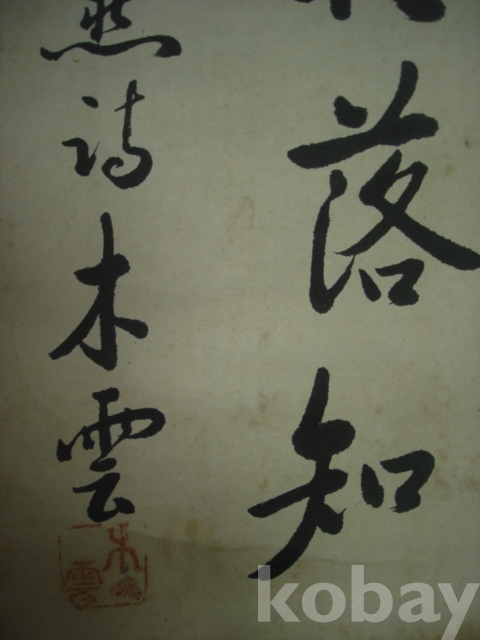 落知
然詩木雲
木雲
kobay